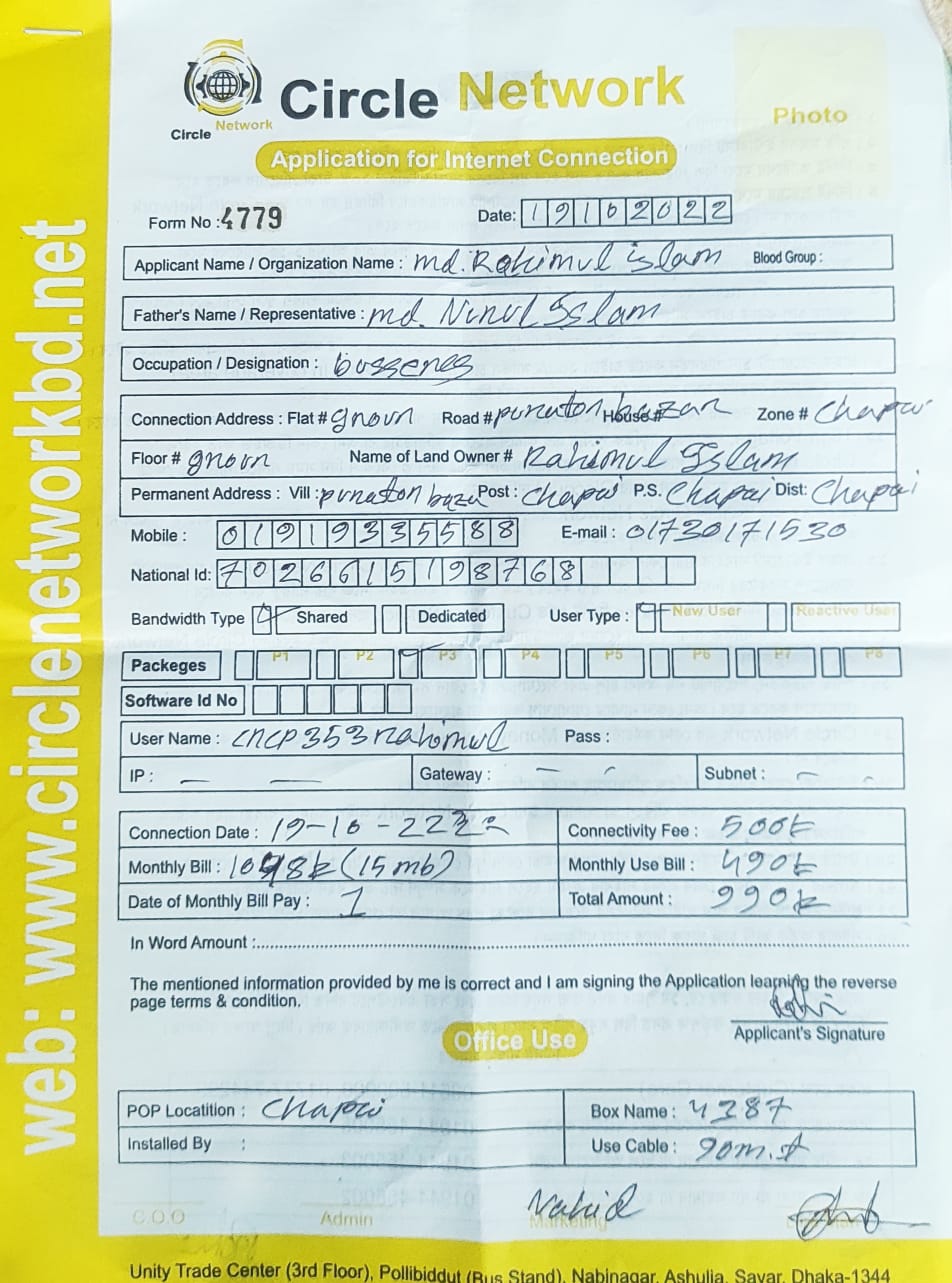 web: www.circlenetworkbd.net
Circle Network
Circle Network
Photo
Application for Internet Connection
Form No : 4779 Date: 19102022
Applicant Name / Organization Name : md. Rahimul islam Blood Group :
Father's Name / Representative : md. Nurul Islam
Occupation / Designation : bussenes
Connection Address : Flat # gnovn Road # puraton bazar House # Zone # Chapai
Floor # gnovn Name of Land Owner # Rahimul Islam
Permanent Address : Vill : puraton baza Post : chapai P.S. Chapai Dist: Chapai
Mobile : 01919335588 E-mail : 01730171530
National Id: 7026615198768
Bandwidth Type Shared Dedicated User Type : New User Reactive User
Packeges P1 P2 P3 P4 P5 P6 P7 P8
Software Id No
User Name : CNCP353Rahimul Pass :
IP : — — Gateway : — - Subnet : — -
Connection Date : 19-10-22 Connectivity Fee : 500t
Monthly Bill : (15mb) Monthly Use Bill : 490t
Date of Monthly Bill Pay : 1 Total Amount : 990t
In Word Amount :
The mentioned information provided by me is correct and I am signing the Application learning the reverse
page terms & condition.
Applicant's Signature
Office Use
POP Locatition : Chapai Box Name : 4387
Installed By : Use Cable : 90m.t
Nahid
C.O.O Admin Marketing
Unity Trade Center (3rd Floor), Pollibiddut (Bus Stand), Nabinagar, Ashulia, Savar, Dhaka-1344